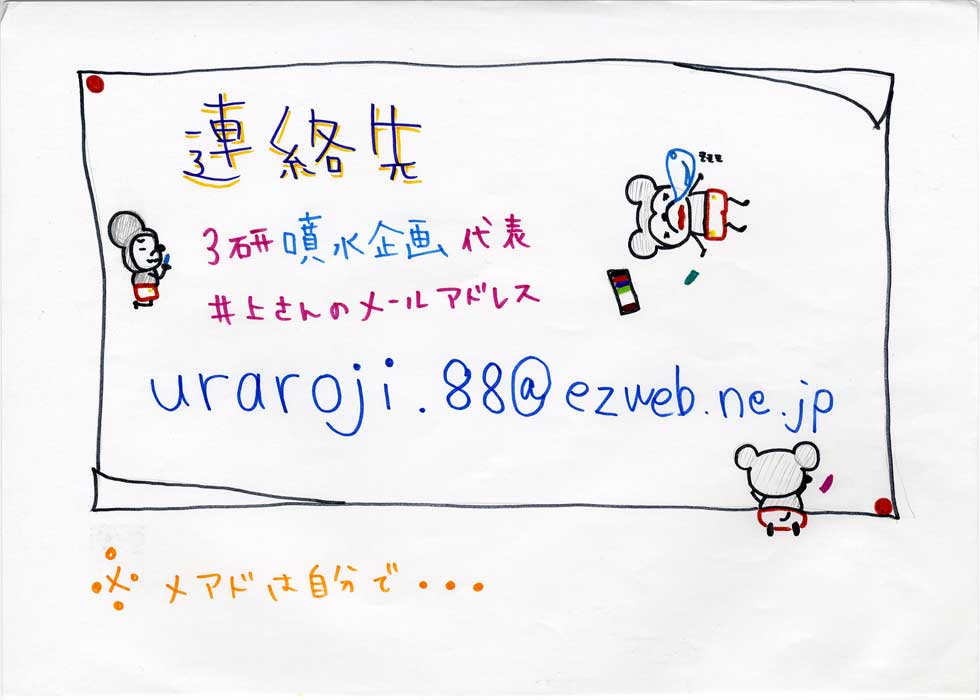 連絡先
zzz
3研 噴水企画 代表
井上さんのメールアドレス
uraroji.88@ezweb.ne.jp
※ メアドは自分で・・・